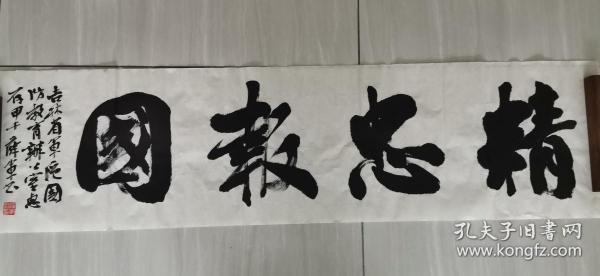 精忠報國
吉林省軍區國
防教育辦公室惠
存甲午
孔夫子旧书网
www.kongfz.com